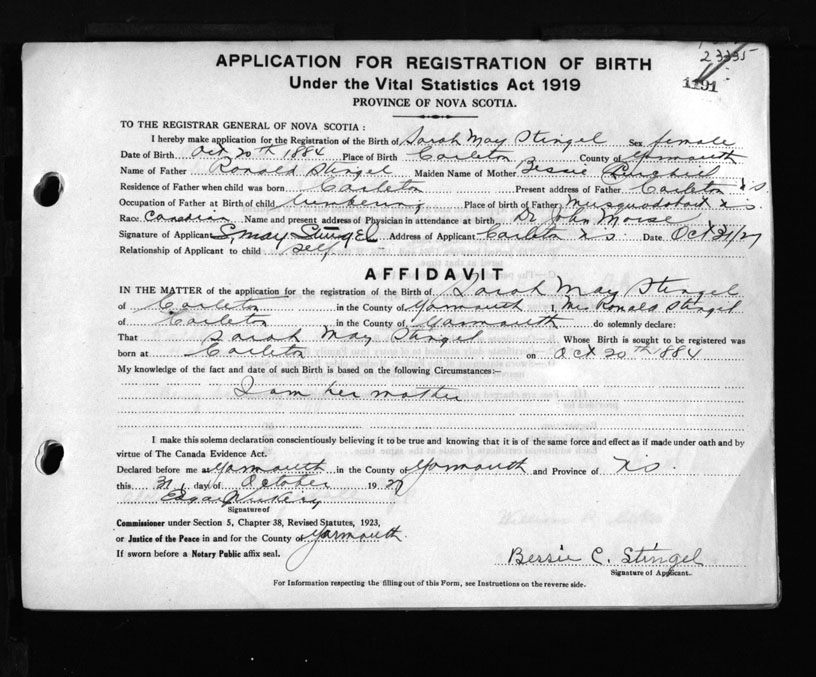 23335
1191
APPLICATION FOR REGISTRATION OF BIRTH
Under the Vital Statistics Act 1919
PROVINCE OF NOVA SCOTIA.
TO THE REGISTRAR GENERAL OF NOVA SCOTIA:
I hereby make application for the Registration of the Birth of Sarah May Stingel Sex female
Date of Birth Oct 20th 1884 Place of Birth Carleton County of Yarmouth
Name of Father Ronald Stingel Maiden Name of Mother Bessie
Residence of Father when child was born Carleton Present address of Father Carleton N.S.
Occupation of Father at Birth of child lumbering Place of birth of Father Musquodoboit N.S.
Race Canadian Name and present address of Physician in attendance at birth Dr John Morse
Signature of Applicant S. May Stingel Address of Applicant Carleton N.S. Date Oct 31/27
Relationship of Applicant to child self
AFFIDAVIT
IN THE MATTER of the application for the registration of the Birth of Sarah May Stingel
of Carleton in the County of Yarmouth I, Mrs Ronald Stingel
of Carleton in the County of Yarmouth do solemnly declare:
That Sarah May Stingel Whose Birth is sought to be registered was
born at Carleton on Oct 20th 1884
My knowledge of the fact and date of such Birth is based on the following Circumstances:—
I am her mother
I make this solemn declaration conscientiously believing it to be true and knowing that it is of the same force and effect as if made under oath and by
virtue of The Canada Evidence Act.
Declared before me at Yarmouth in the County of Yarmouth and Province of N.S.
this 31 day of October 1927
Edgar
Signature of
Commissioner under Section 5, Chapter 38, Revised Statutes, 1923,
or Justice of the Peace in and for the County of Yarmouth.
If sworn before a Notary Public affix seal.
Bessie C. Stingel
Signature of Applicant.
For Information respecting the filling out of this Form, see Instructions on the reverse side.